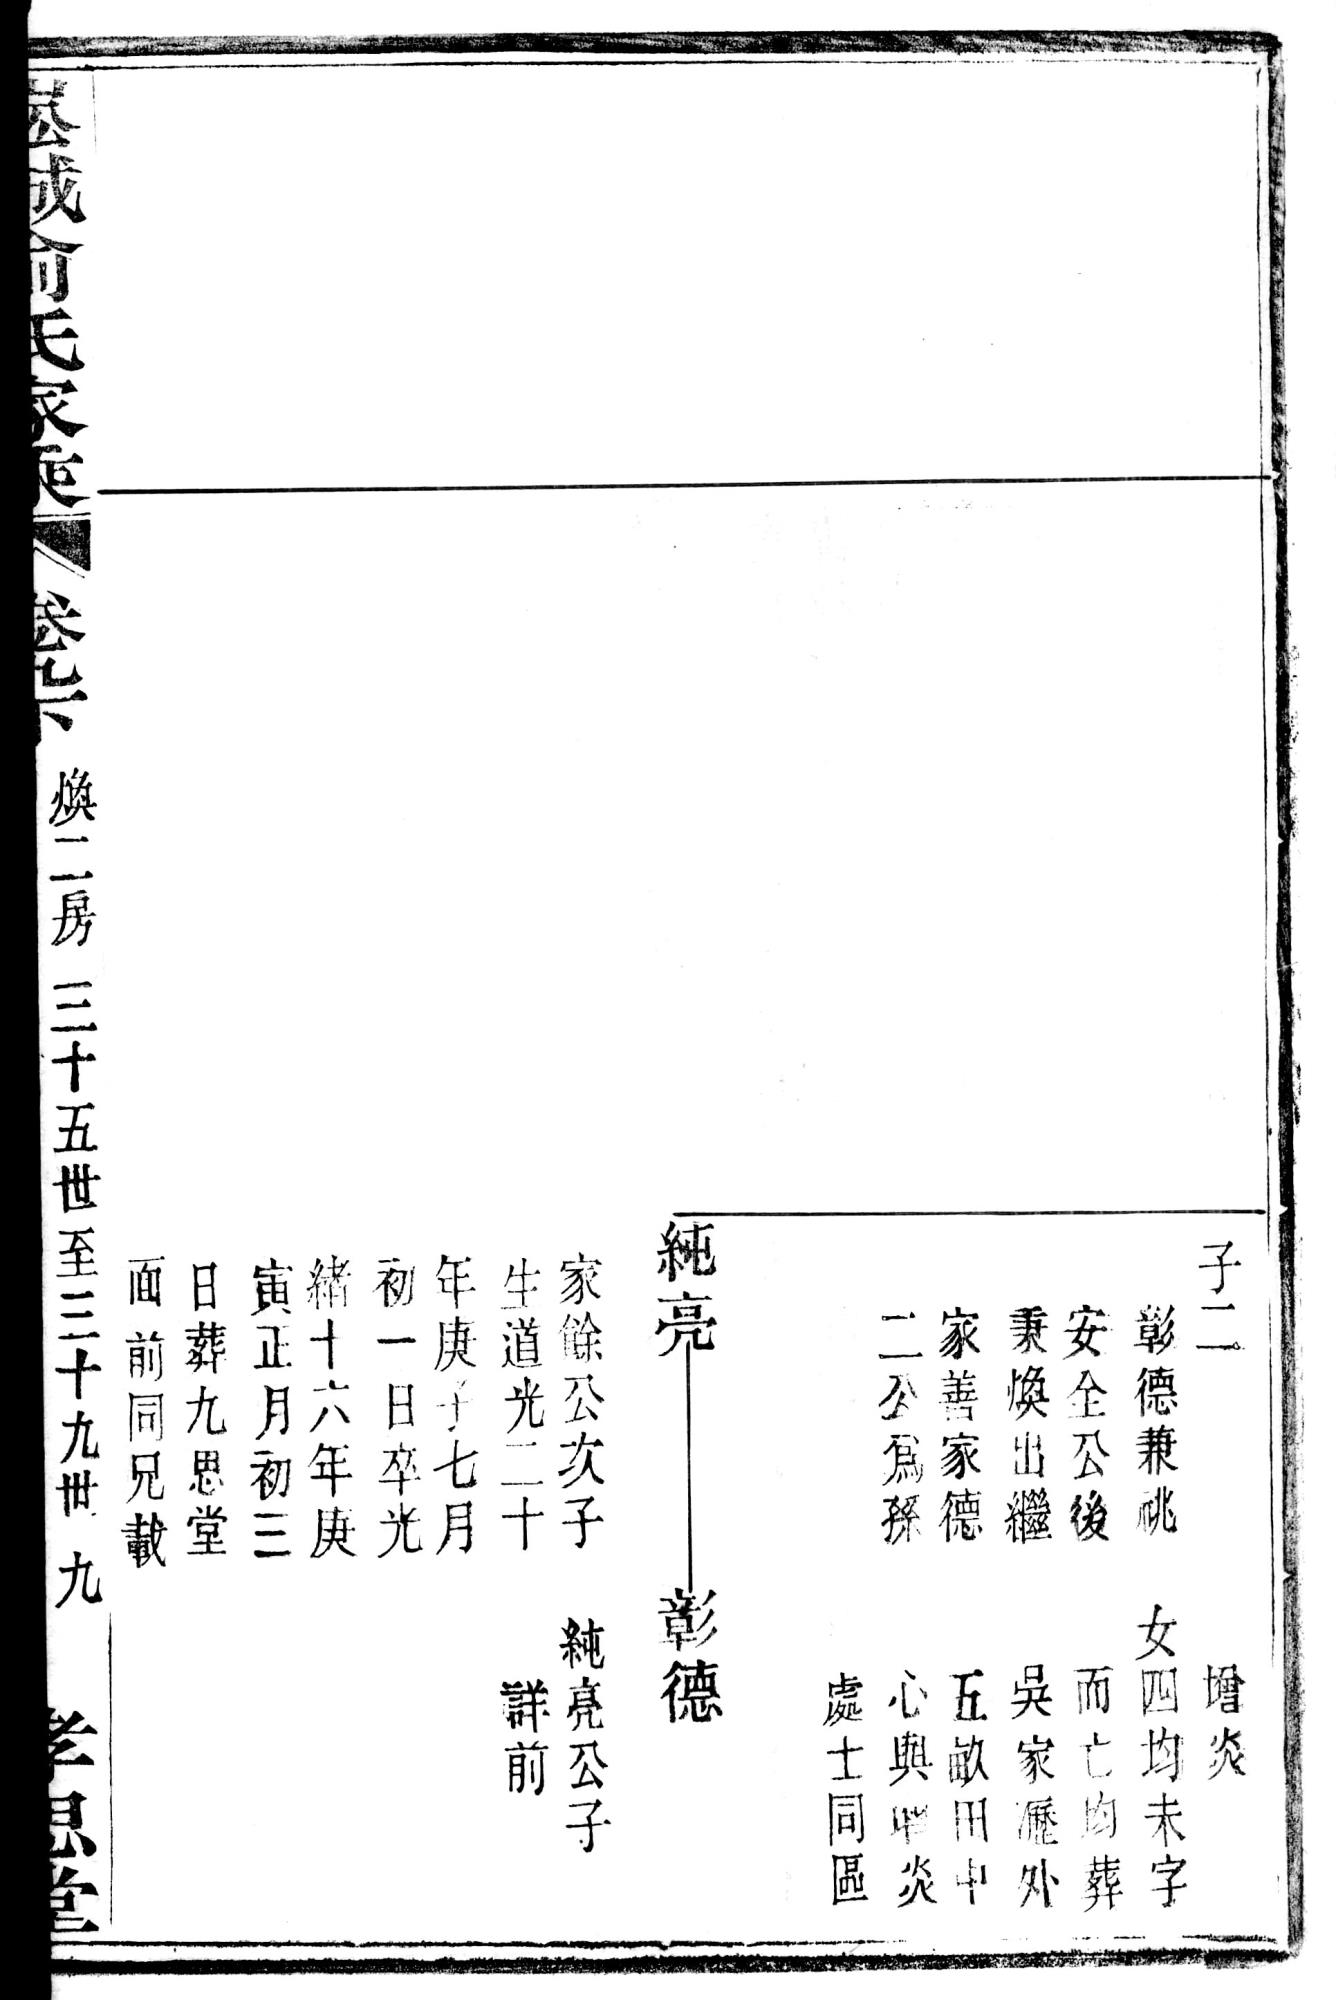 子二
彰德兼祧
安全公後
秉煥出繼
家善家德
二公爲孫
增炎
女四均未字
而亡均葬
吳家瀝外
五畝田中
心與聯炎
處士同區
純亮
彰德
家餘公次子
生道光二十
年庚子七月
初一日卒光
緒十六年庚
寅正月初三
日葬九思堂
面前同兄載
純亮公子
詳前
崧城俞氏家乘
卷九下
煥二房
三十五世至三十九世
九
孝思堂